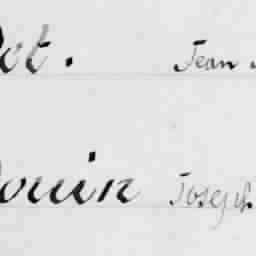 ot. Jean
ouin Joseph